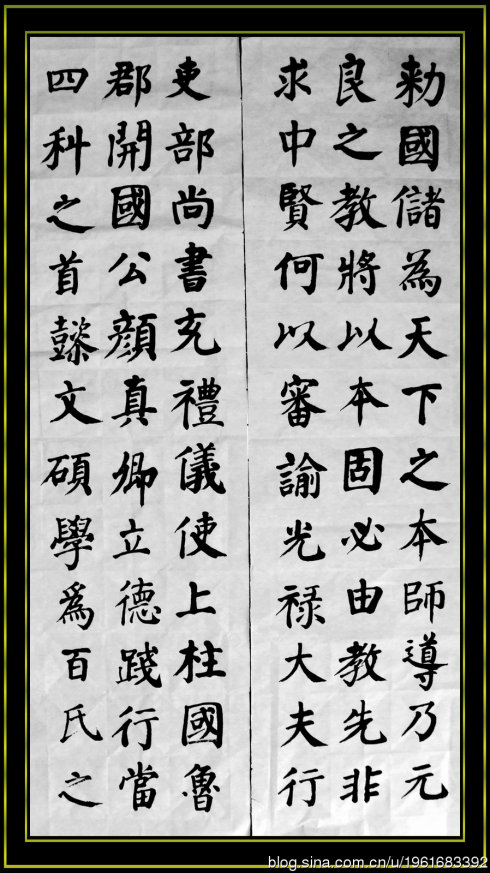 勅國儲為天下之本師導乃元
良之教將以本固必由教先非
求中賢何以審諭光禄大夫行
吏部尚書充禮儀使上柱國魯
郡開國公顔真卿立德踐行當
四科之首懿文碩學爲百氏之
blog.sina.com.cn/u/1961683392